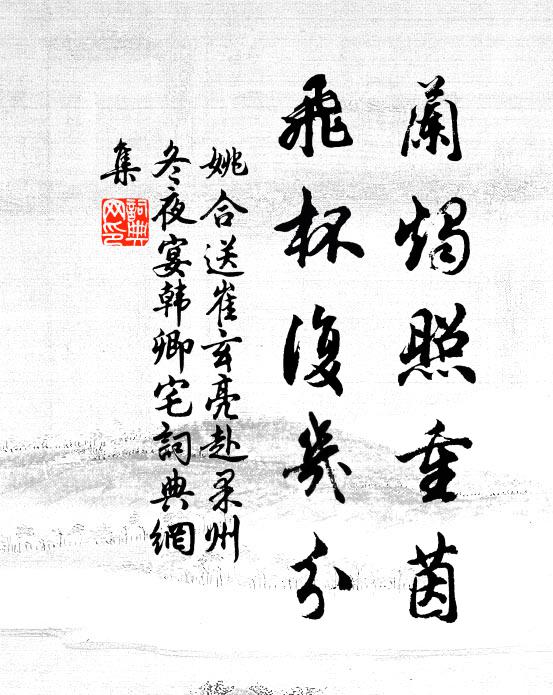 蘭燭照重茵
飛杯復幾分
姚合送崔玄亮赴果州
冬夜宴韓卿宅詞典網
集
詞典
网印